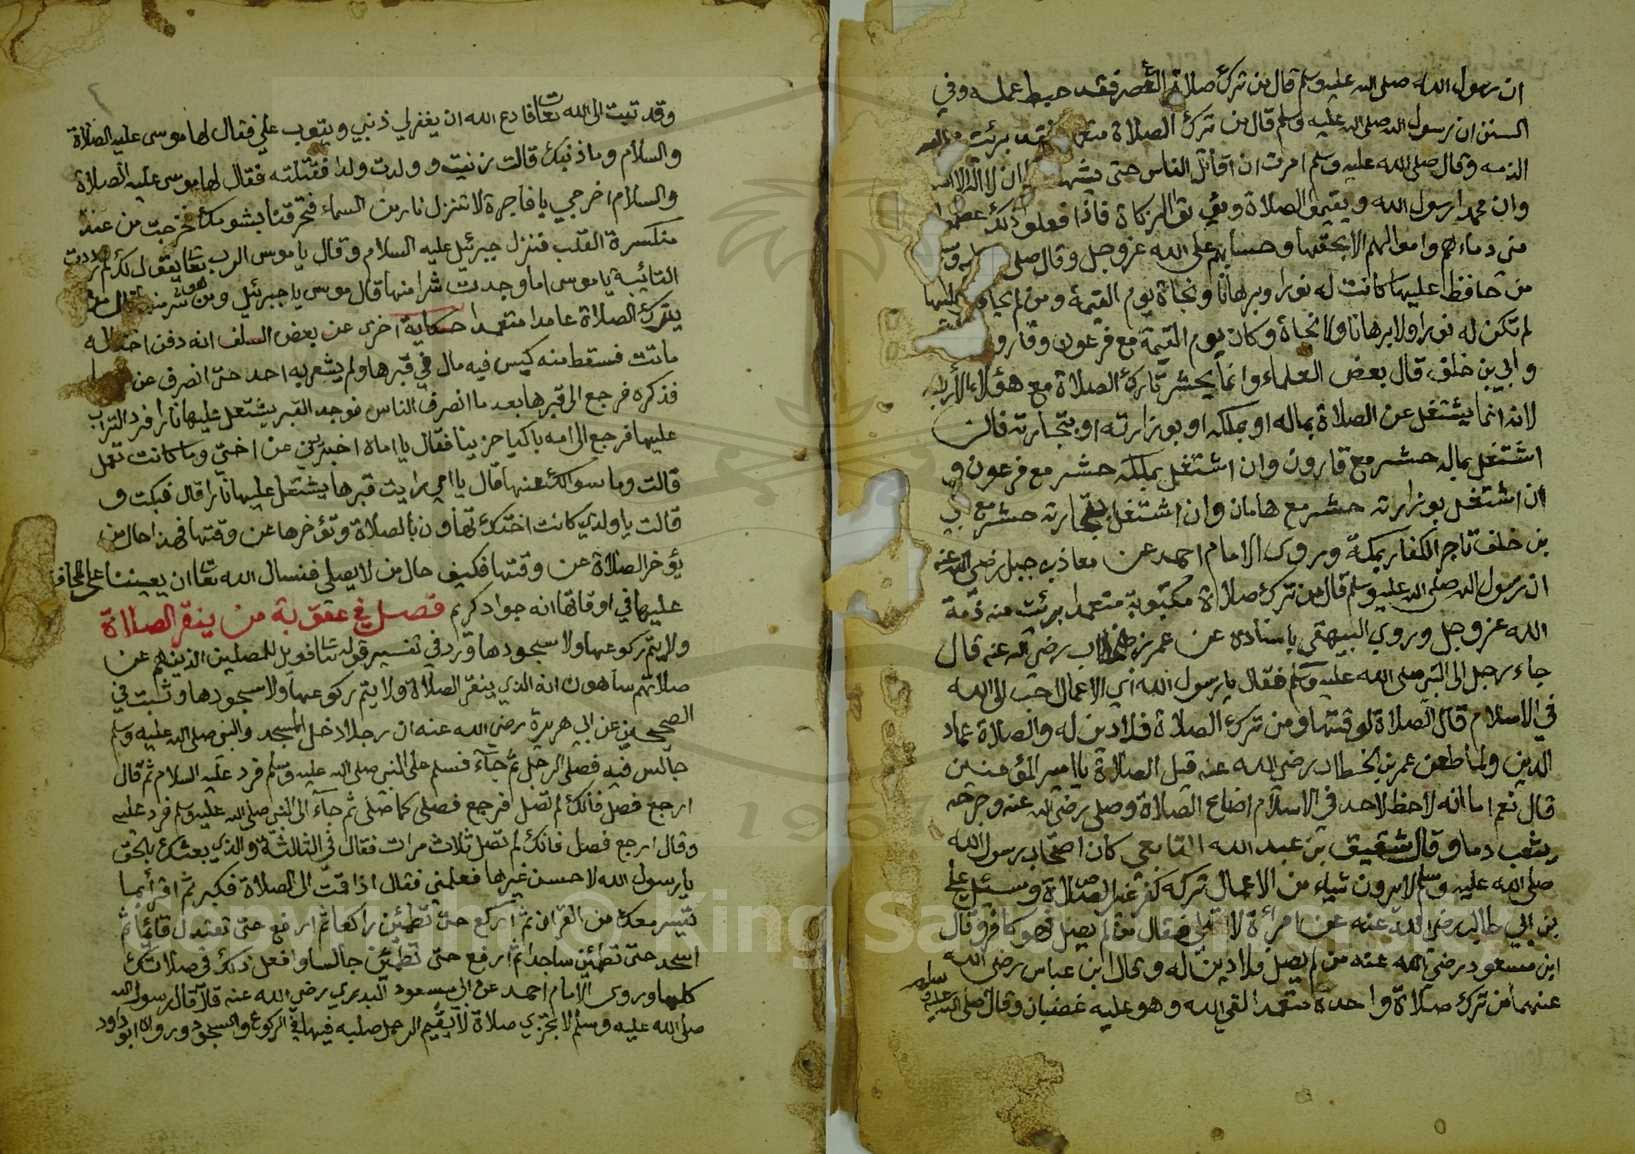 ان رسول الله صلى الله عليه وسلم قال من ترك صلاة العصر فقد حبط عمله وفي
السنن ان رسول الله صلى الله عليه وسلم قال من ترك الصلاة متعمدا فقد برئت منه
الذمه وقال صلى الله عليه وسلم امرت ان اقاتل الناس حتى يشهدوا ان لا اله الا الله
وان محمدا رسول الله ويقيموا الصلاة ويؤتوا الزكاة فاذا فعلوا ذلك عصموا
مني دماءهم واموالهم الا بحقها وحسابهم على الله عز وجل وقال صلى الله عليه وسلم
من حافظ عليها كانت له نورا وبرهانا ونجاة يوم القيمة ومن لم يحافظ عليها
لم تكن له نورا ولا برهانا ولا نجاة وكان يوم القيمة مع فرعون وقارون
وابي بن خلف قال بعض العلماء وانما يحشر تارك الصلاة مع هؤلاء الاربعة
لانه انما يشتغل عن الصلاة بماله او بملكه او بوزارته او بتجارته فان
اشتغل بماله حشر مع قارون وان اشتغل بملكه حشر مع فرعون و
ان اشتغل بوزارته حشر مع هامان وان اشتغل بتجارته حشر مع ابي
بن خلف تاجر الكفار بمكة وروى الامام احمد عن معاذ بن جبل رضي الله عنه
ان رسول الله صلى الله عليه وسلم قال من ترك صلاة مكتوبة متعمدا برئت منه ذمة
الله عز وجل وروى البيهقي باسناده عن عمر بن الخطاب رضي الله عنه قال
جاء رجل الى النبي صلى الله عليه وسلم فقال يا رسول الله اي الاعمال احب الى الله
في الاسلام قال الصلاة لوقتها ومن ترك الصلاة فلا دين له والصلاة عماد
الدين ولما طعن عمر بن الخطاب رضي الله عنه قيل الصلاة يا امير المؤمنين
قال نعم اما انه لا حظ لاحد في الاسلام اضاع الصلاة وصلى رضي الله عنه وجرحه
يثعب دما وقال شقيق بن عبد الله التابعي كان اصحاب رسول الله
صلى الله عليه وسلم لا يرون شياء من الاعمال تركه كفر غير الصلاة وسئل علي
بن ابي طالب رضي الله عنه عن امرأة لا تصلي فقال من لم يصل فهو كافر وقال
ابن مسعود رضي الله عنه من لم يصل فلا دين له وقال ابن عباس رضي الله
عنهما من ترك صلاة واحدة متعمدا لقي الله وهو عليه غضبان وقال صلى الله عليه وسلم
وقد تبت الى الله تعا فادع الله ان يغفر لي ذنبي ويتوب علي فقال لها موسى عليه الصلاة
والسلام وما ذنبك قالت زنيت وولدت ولدا فقتلته فقال لها موسى عليه الصلاة
والسلام اخرجي يا فاجرة لا تنزل نار من السماء فتحرقنا بشومك فخرجت من عنده
منكسرة القلب فنزل جبرئيل عليه السلام وقال يا موسى الرب تعا يقول لك لم رددت
التائبة يا موسى اما وجدت شرا منها قال موسى يا جبرئيل ومن هو شر منها قال من
يترك الصلاة عامدا متعمدا حكاية اخرى عن بعض السلف انه دفن اختا له
ماتت فسقط منه كيس فيه مال في قبرها ولم يشعر به احد حتى انصرف عن قبرها
فذكره فرجع الى قبرها بعد ما انصرف الناس فوجد القبر يشتعل عليها نارا فرد التراب
عليها فرجع الى امه باكيا حزينا فقال يا اماه اخبريني عن اختي وما كانت تعمل
قالت وما سوالك عنها قال يا امي رايت قبرها يشتعل عليها نارا قال فبكت و
قالت يا ولدي كانت اختك تهاون بالصلاة وتؤخرها عن وقتها فهذا حال من
يؤخر الصلاة عن وقتها فكيف حال من لا يصلي فنسال الله تعا ان يعيننا على المحافظة
عليها في اوقاتها انه جواد كريم فصل في عقوبة من ينقر الصلاة
ولا يتم ركوعها ولا سجودها ورد في تفسير قوله تعا فويل للمصلين الذين هم عن
صلاتهم ساهون انه الذي ينقر الصلاة ولا يتم ركوعها ولا سجودها وثبت في
الصحيحين عن ابي هريرة رضي الله عنه ان رجلا دخل المسجد والنبي صلى الله عليه وسلم
جالس فيه فصلى الرجل ثم جاء فسلم على النبي صلى الله عليه وسلم فرد عليه السلام ثم قال
ارجع فصل فانك لم تصل فرجع فصلى كما صلى ثم جاء الى النبي صلى الله عليه وسلم فرد عليه
وقال ارجع فصل فانك لم تصل ثلاث مرات فقال في الثالثة والذي بعثك بالحق
يا رسول الله لا احسن غيرها فعلمني فقال اذا قمت الى الصلاة فكبر ثم اقرأ بما
تيسر معك من القرآن ثم اركع حتى تطمئن راكعا ثم ارفع حتى تعتدل قائما ثم
اسجد حتى تطمئن ساجدا ثم ارفع حتى تطمئن جالسا وافعل ذلك في صلاتك
كلها وروى الامام احمد عن ابي مسعود البدري رضي الله عنه قال قال رسول الله
صلى الله عليه وسلم لا تجزي صلاة لا يقيم الرجل صلبه فيها في الركوع والسجود ورواه ابو داود